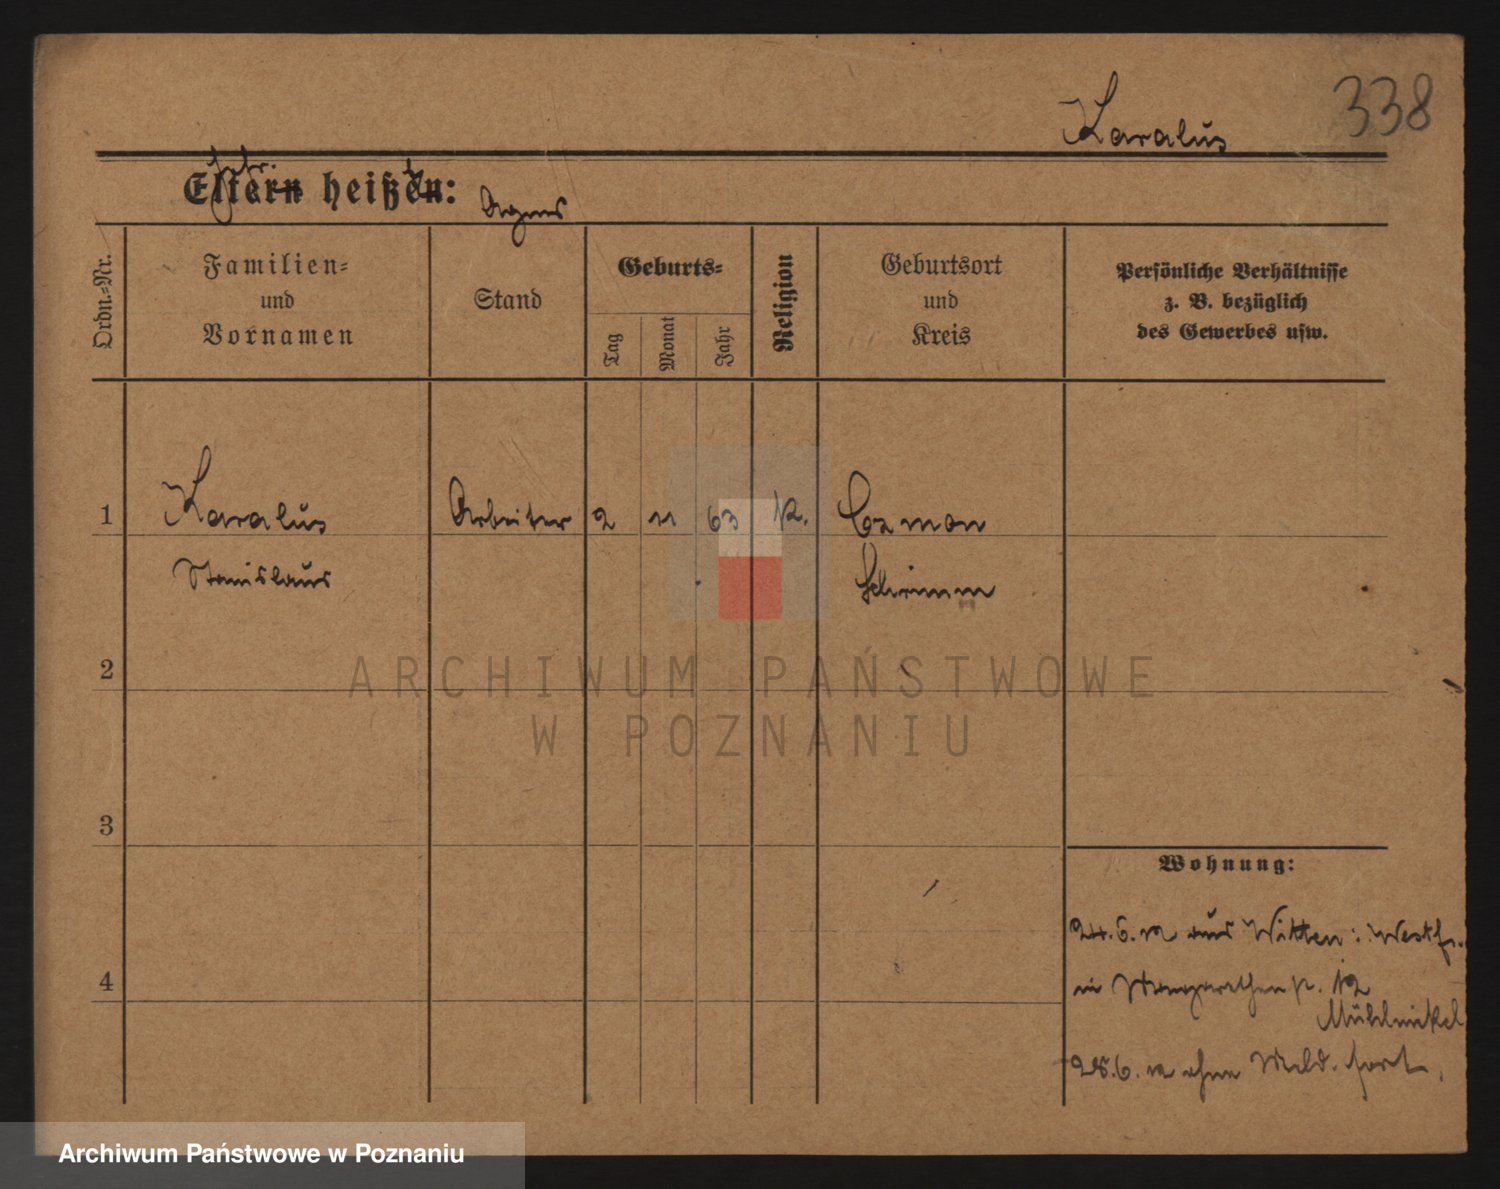 Karalus 338
Eltern heißen:
Agnes
Ordn.-Nr.
Familien-
und
Vornamen
Stand
Geburts-
Tag
Monat
Jahr
Religion
Geburtsort
und
Kreis
Persönliche Verhältnisse
z. B. bezüglich
des Gewerbes usw.
1 Karalus Arbeiter 2 11 63 k. Czmon
Stanislaus Schrimm
2
3
4
Wohnung:
24.6. aus Witten i. Westf.
in Margarethenstr. 12
25.6. ohne Meld. fort.
ARCHIWUM PAŃSTWOWE
W POZNANIU
Archiwum Państwowe w Poznaniu